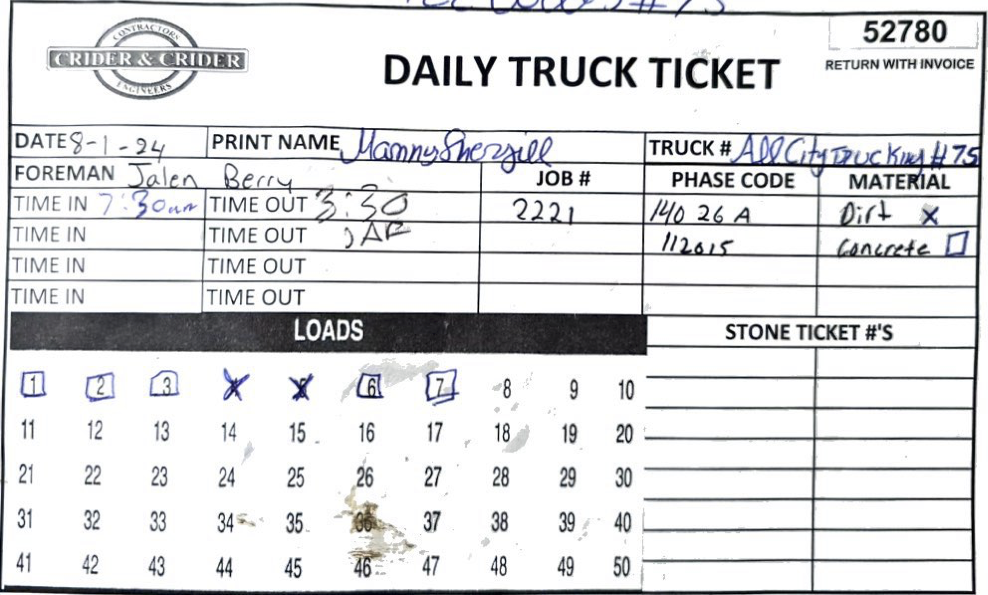 #75
CONTRACTORS
CRIDER & CRIDER
ENGINEERS
DAILY TRUCK TICKET
52780
RETURN WITH INVOICE
DATE 8-1-24 PRINT NAME Manny Shergill TRUCK # All City Trucking #75
FOREMAN Jalen Berry JOB # PHASE CODE MATERIAL
TIME IN 7:30am TIME OUT 3:30 2221 140 26 A Dirt X
TIME IN TIME OUT JAB 112015 Concrete □
TIME IN TIME OUT
TIME IN TIME OUT
LOADS STONE TICKET #'S
1 2 3 4 5 6 7 8 9 10
11 12 13 14 15 16 17 18 19 20
21 22 23 24 25 26 27 28 29 30
31 32 33 34 35 36 37 38 39 40
41 42 43 44 45 46 47 48 49 50